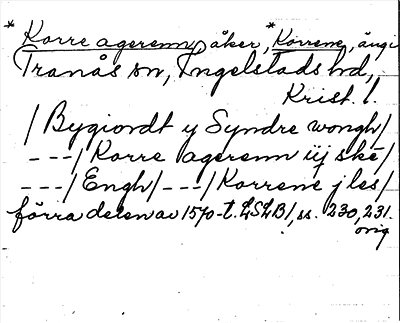 * Korre agerenn, åker, * Korrene, äng i
Tranås sn, Ingelstads hd,
Krist. l.
/ Bygiordt y Syndre wongh /
--- / Korre agerenn iij ske /
--- / Engh / --- / Korrene j les /
förra delen av 1570-t. LSLB 1, ss. 230, 231.
orig